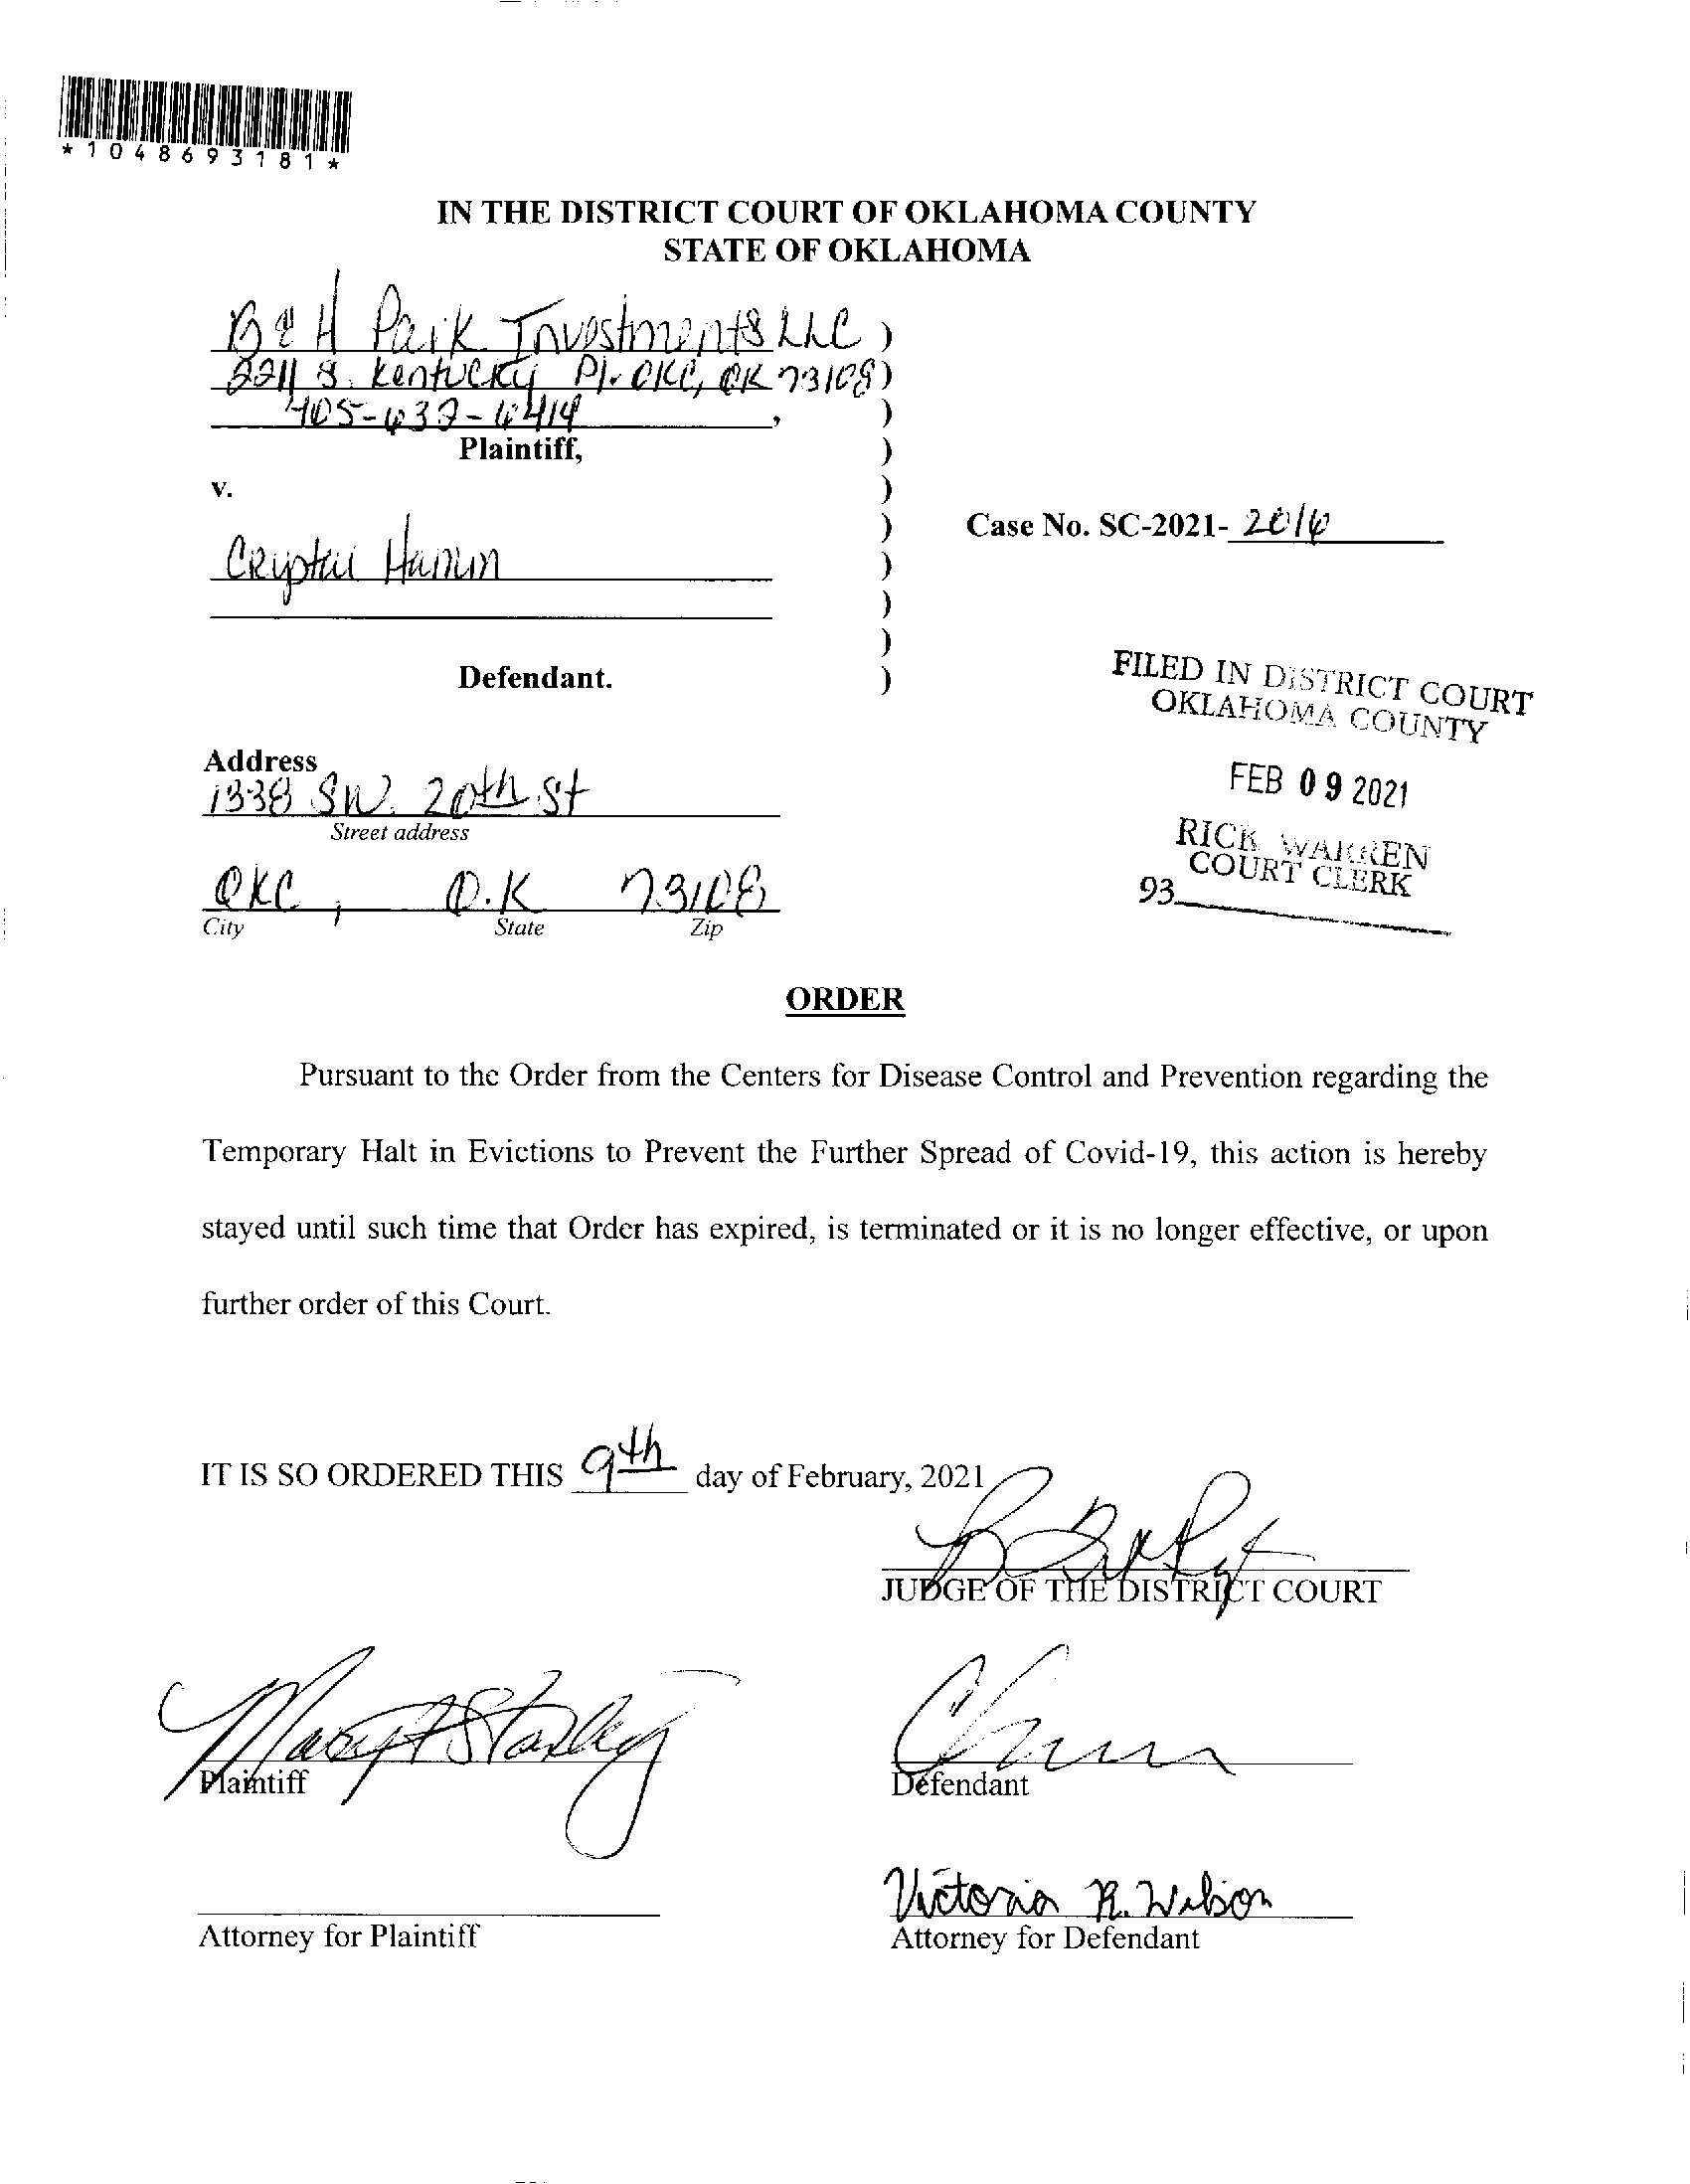 *1048693181*
IN THE DISTRICT COURT OF OKLAHOMA COUNTY
STATE OF OKLAHOMA
B & H Park Investments LLC )
2211 S. Kentucky Pl. OKC, OK 73108 )
, )
Plaintiff, )
v. )
) Case No. SC-2021- 2016
)
)
)
Defendant. )
FILED IN DISTRICT COURT
OKLAHOMA COUNTY
FEB 09 2021
RICK WARREN
COURT CLERK
93
Address
1338 SW. 20th St
Street address
OKC, O.K 73108
City State Zip
ORDER
Pursuant to the Order from the Centers for Disease Control and Prevention regarding the
Temporary Halt in Evictions to Prevent the Further Spread of Covid-19, this action is hereby
stayed until such time that Order has expired, is terminated or it is no longer effective, or upon
further order of this Court.
IT IS SO ORDERED THIS 9th day of February, 2021
JUDGE OF THE DISTRICT COURT
Plaintiff
Defendant
Victoria R. Wilson
Attorney for Plaintiff
Attorney for Defendant